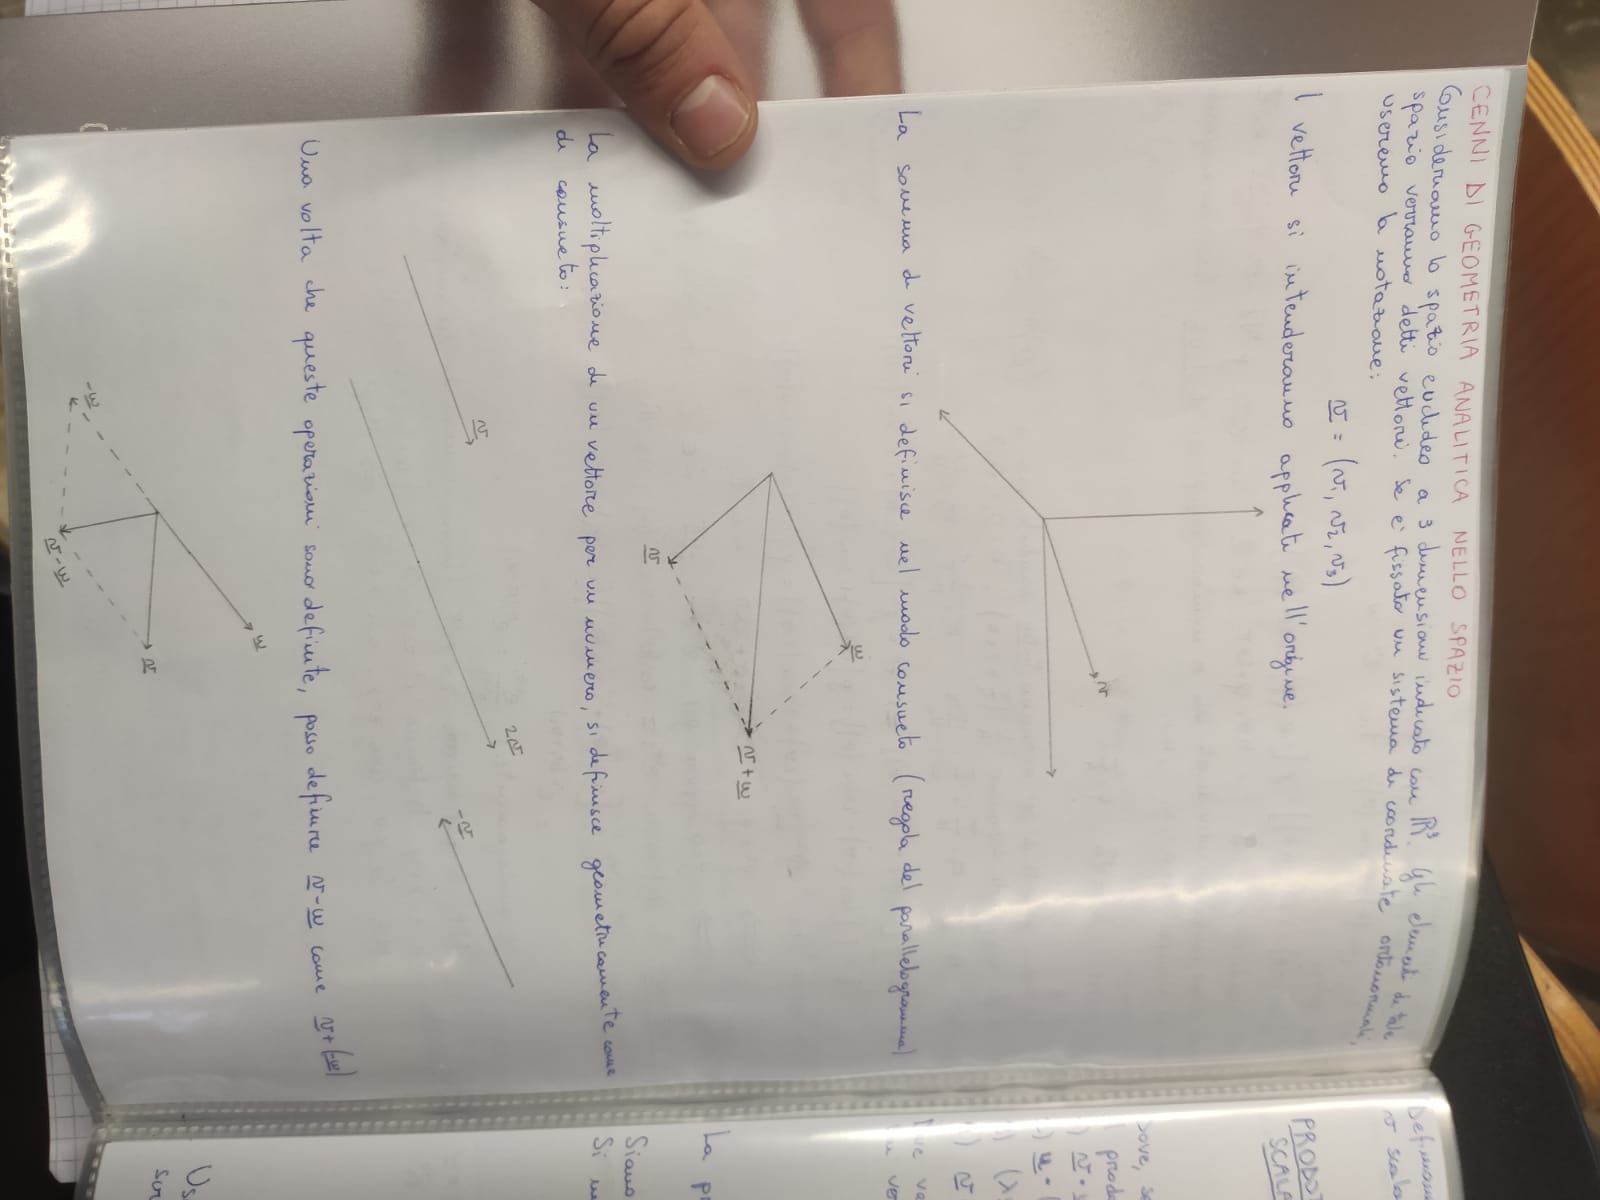 CENNI DI GEOMETRIA ANALITICA NELLO SPAZIO
Consideriamo lo spazio euclideo a 3 dimensioni indicato con ℝ³. Gli elementi di tale
spazio verranno detti vettori. Se è fissato un sistema di coordinate ortonormali,
useremo la notazione:
v = (v₁, v₂, v₃)
I vettori si intenderanno applicati nell'origine.
v
La somma di vettori si definisce nel modo consueto (regola del parallelogramma)
w
v+w
v
La moltiplicazione di un vettore per un numero, si definisce geometricamente come
di consueto:
v
2v
-v
Una volta che queste operazioni sono definite, posso definire v-w come v+(-w)
w
v
-w
v-w
Definiamo
v scala
PRODOT
SCALA
La p
Siano
Si
Us